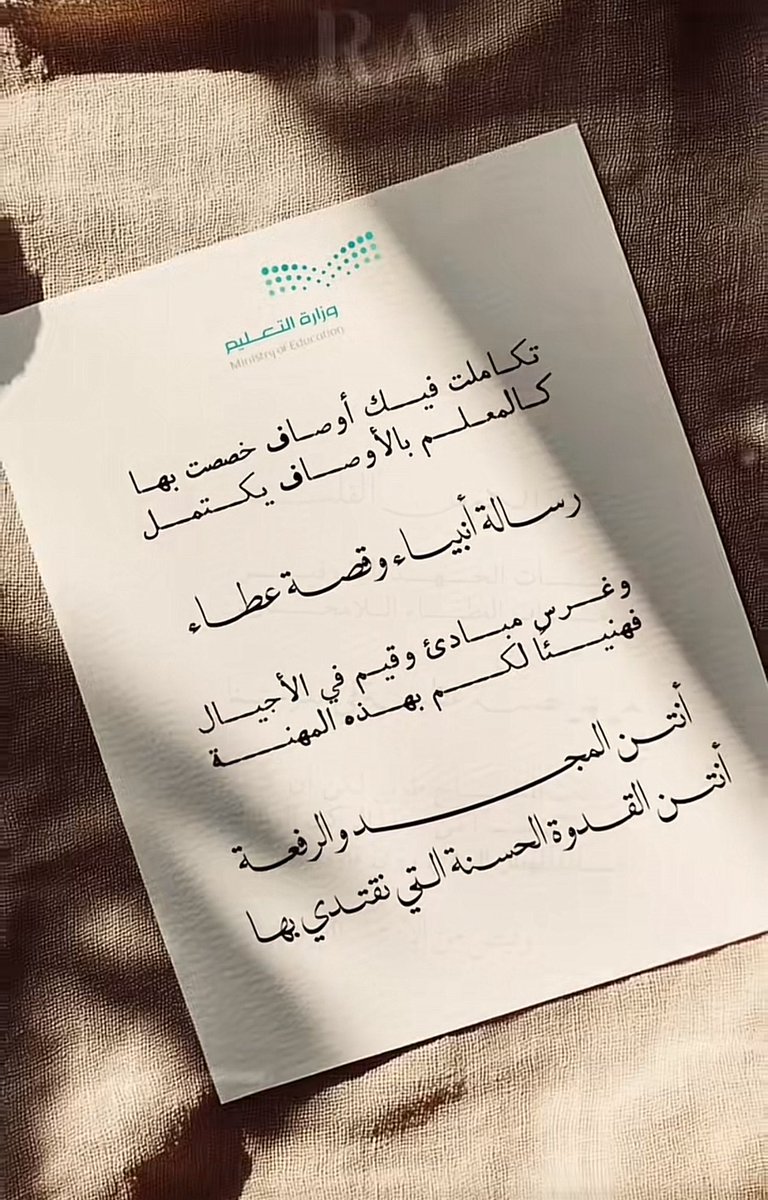 RA
وزارة التعليم
Ministry of Education
تكاملت فيك أوصاف خصصت بها
كالمعلم بالأوصاف يكتمل
رسالة أنبياء وقصة عطاء
وغرس مبادئ وقيم في الأجيال
فهنيئًا لكم بهذه المهنة
أنتن المجد والرفعة
أنتن القدوة الحسنة التي نقتدي بها